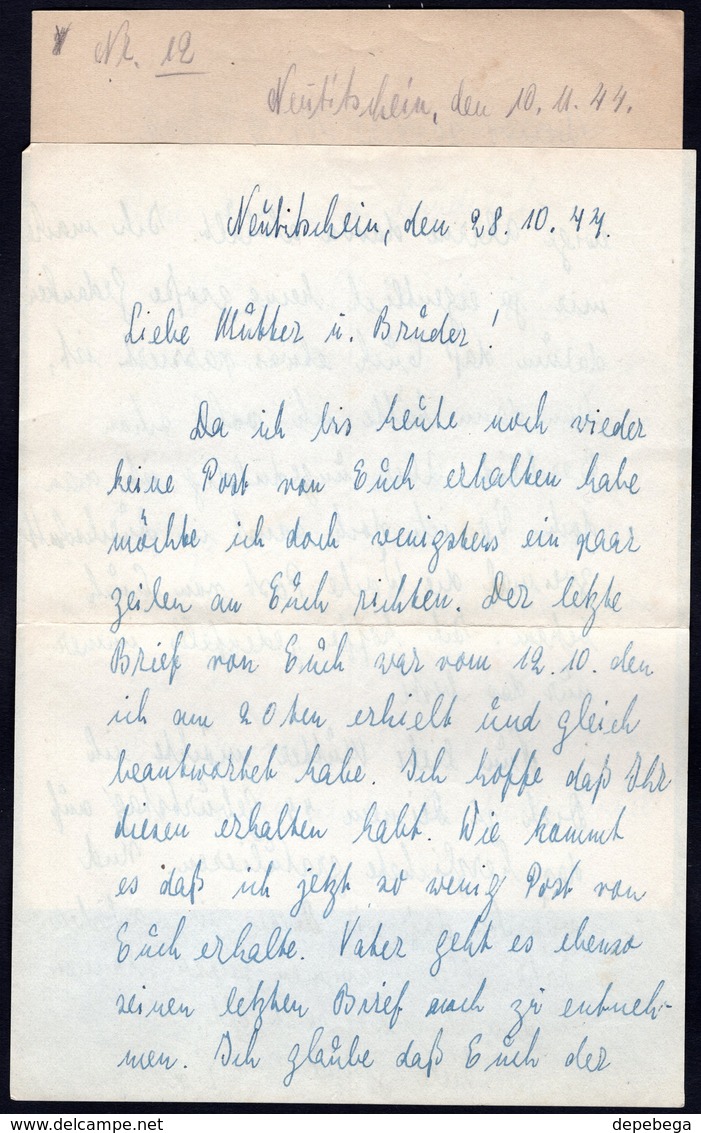 Nr. 12
Neutitschein, den 10.11.44.
Neutitschein, den 28.10.44.
Liebe Mutter u. Brüder!
Da ich bis heute noch wieder
keine Post von Euch erhalten habe
möchte ich doch wenigstens ein paar
zeilen an Euch richten. Der letzte
Brief von Euch war vom 12.10. den
ich am 20ten erhielt und gleich
beantwortet habe. Ich hoffe daß Ihr
diesen erhalten habt. Wie kommt
es daß ich jetzt so wenig Post von
Euch erhalte. Vater geht es ebenso
seinen letzten Brief nach zu entneh-
men. Ich glaube daß Euch der
depebega